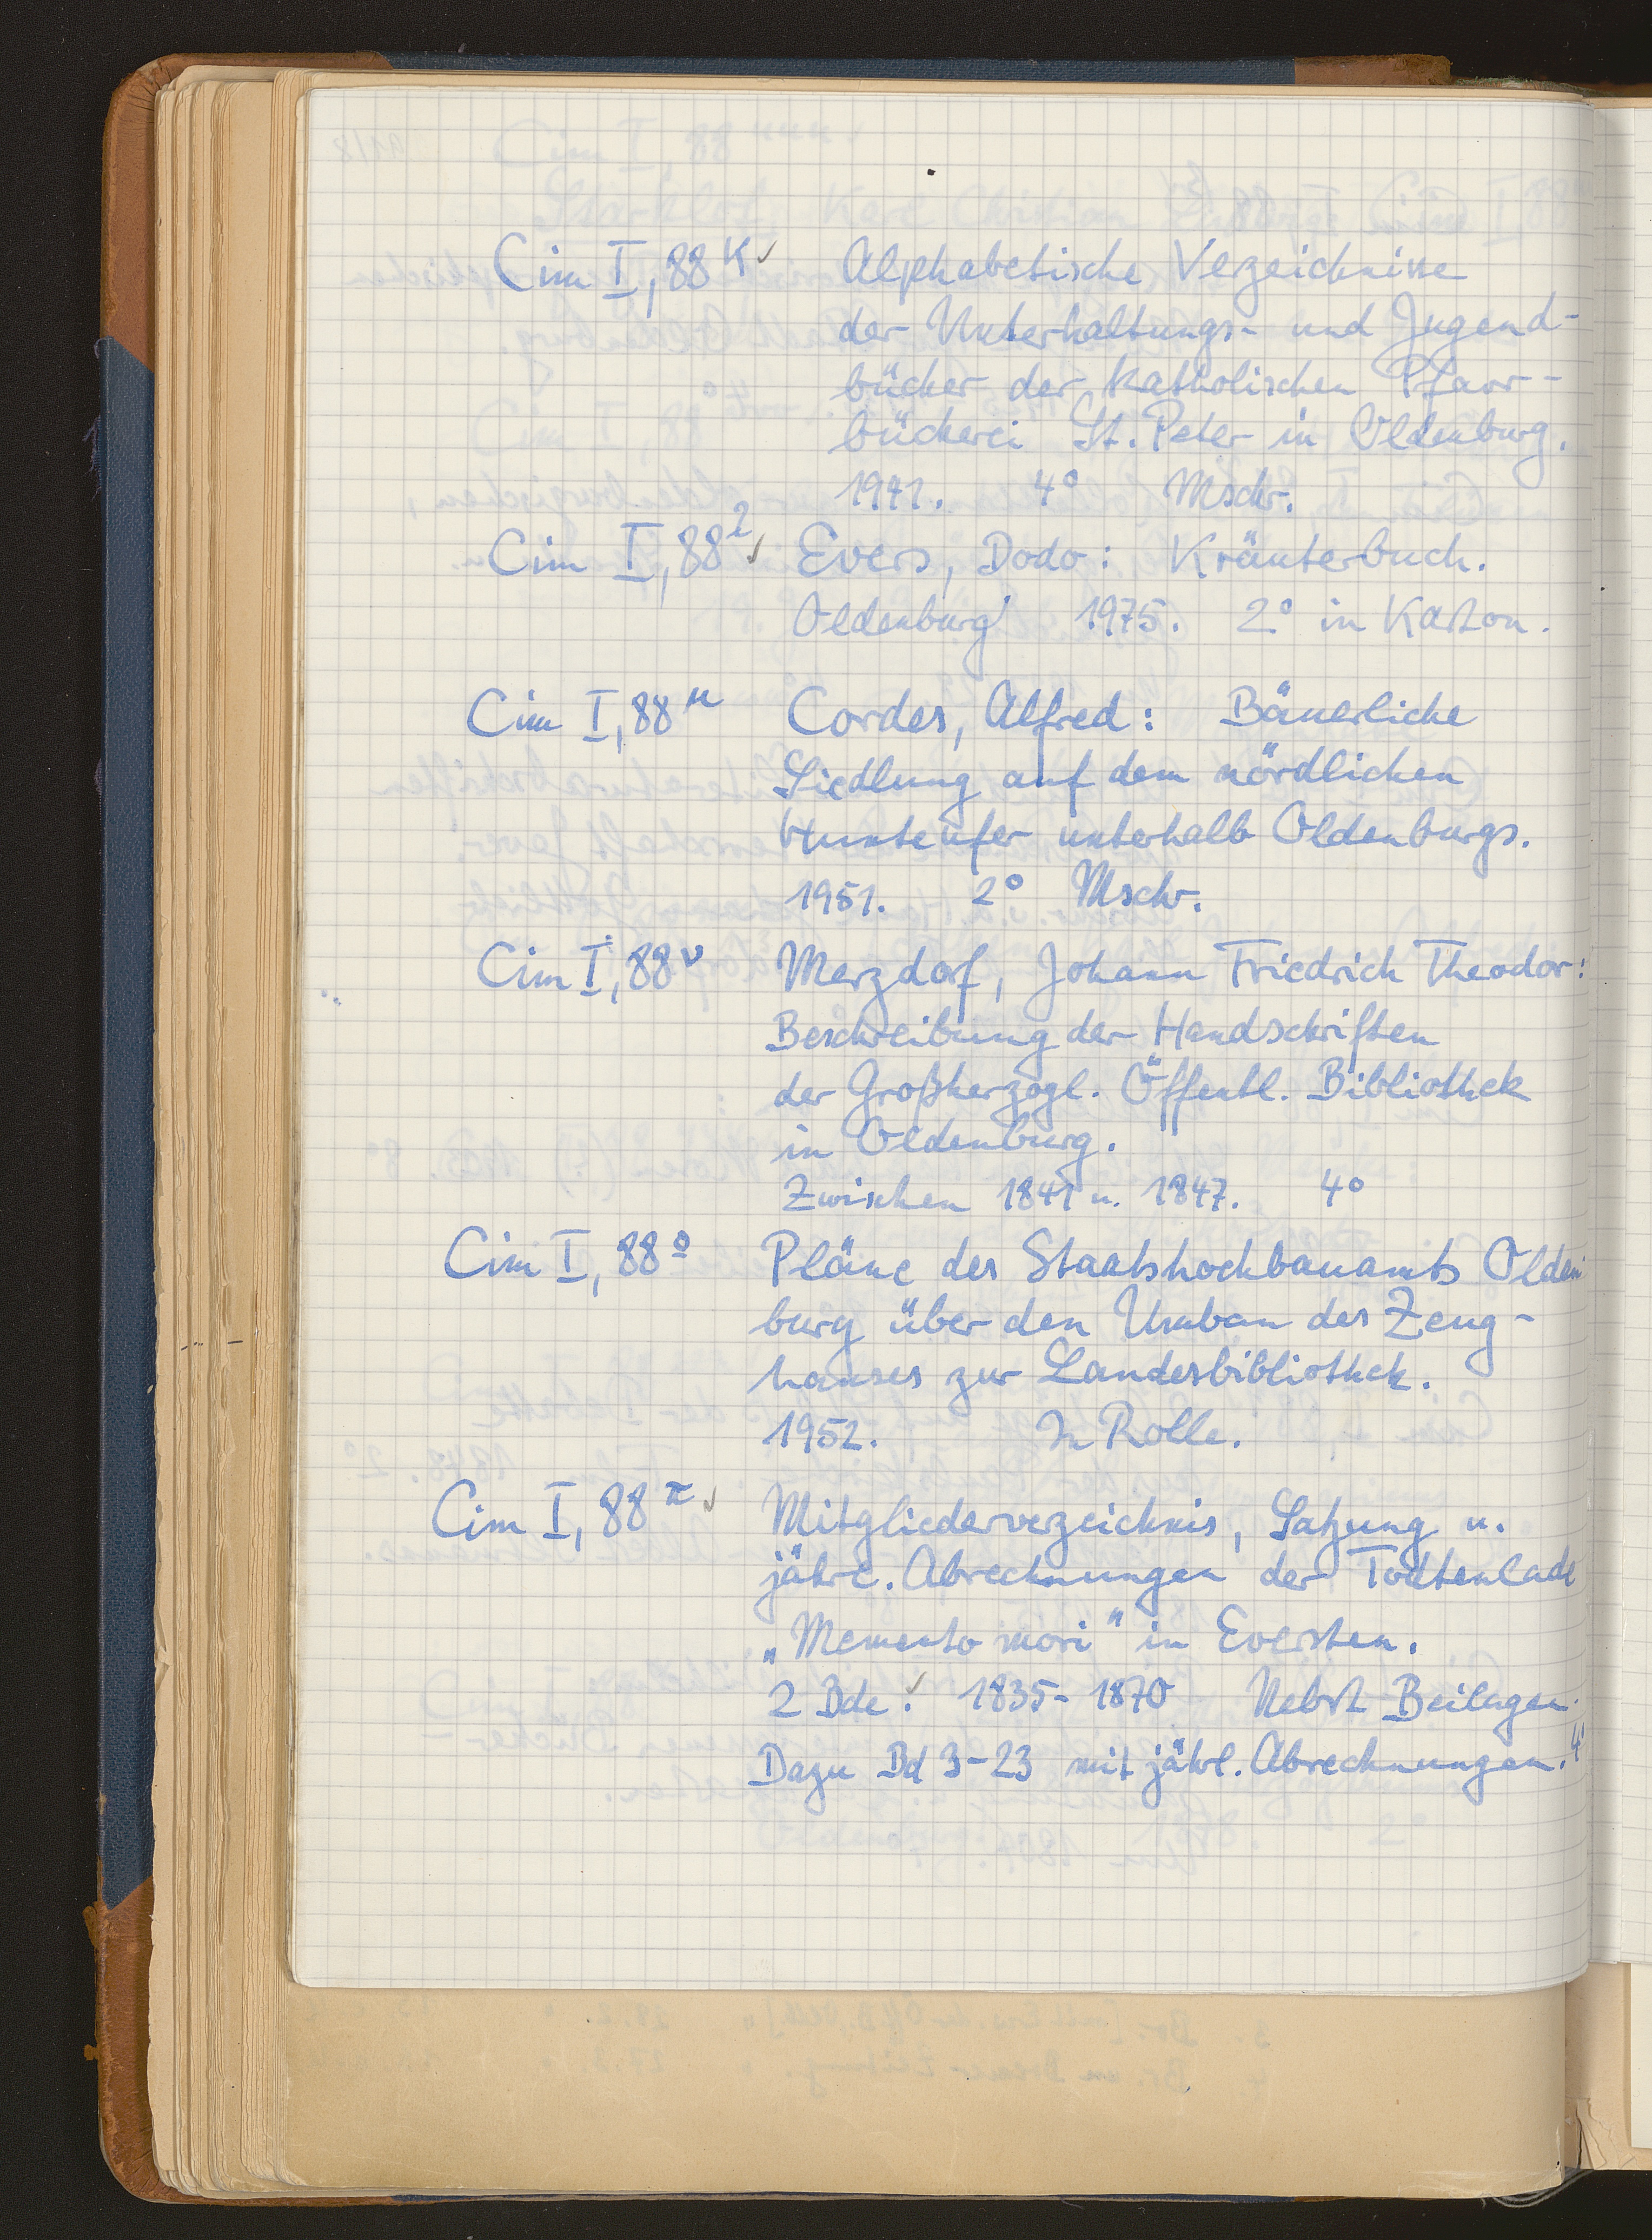 Cim I, 88 κ ✓ Alphabetische Vezeichnisse
der Unterhaltungs- und Jugend-
bücher der katholischen Pfarr-
bücherei St. Peter in Oldenburg.
1941. 4° Mschr.
Cim I, 88 λ ✓ Evers, Dodo: Kräuterbuch.
Oldenburg 1975. 2° in Karton.
Cim I, 88 μ Cordes, Alfred: Bäuerliche
Siedlung auf dem nördlichen
Hunteufer unterhalb Oldenburgs.
1951. 2° Mschr.
Cim I, 88 ν Merzdorf, Johann Friedrich Theodor:
Beschreibung der Handschriften
der Großherzogl. Öffentl. Bibliothek
in Oldenburg.
Zwischen 1841 u. 1847. 4°
Cim I, 88 o Pläne des Staatshochbauamts Olden-
burg über den Umbau des Zeug-
hauses zur Landesbibliothek.
1952. In Rolle.
Cim I, 88 π ✓ Mitgliederverzeichnis, Satzung u.
jährl. Abrechnungen der Todtenlade
„Memento mori" in Eversten.
2 Bde. ✓ 1835-1870 Nebst Beilagen.
Dazu Bd 3-23 mit jährl. Abrechnungen. 4°